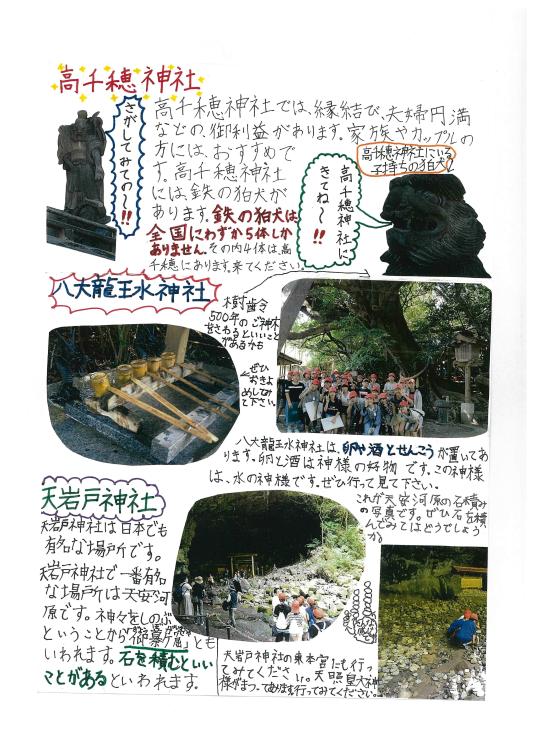 高千穂神社
さがしてみての〜!!
高千穂神社では、縁結び、夫婦円満
などの、御利益があります。家族やカップルの
方には、おすすめで
す。高千穂神社
には、鉄の狛犬が
あります。鉄の狛犬は
全国にわずか5体しか
ありません。その内4体は、高
千穂にあります。来てください。
高千穂神社に
きてね〜!!
高千穂神社にいる
子持ちの狛犬
八大龍王水神社
樹齢
500年のご神木
さわるといいこと
があるかも
ぜひ
おきよ
めして
下さい。
八大龍王水神社は、卵や酒とせんこうが置いてあ
ります。卵と酒は神様の好物です。この神様
は、水の神様です。ぜひ行って見て下さい。
天岩戸神社
天岩戸神社は日本でも
有名な場所です。
天岩戸神社で一番有名
な場所は天安河
原です。神々をしのぶ
ということから とも
いわれます。石を積むといい
ことがあるといわれます。
これが天安河原の石積み
の写真です。ぜひ石を積
んでみてはどうでしょう
か。
天岩戸神社の東本宮にも行っ
てみてください。天照皇大神
様がまつってあります。行ってみてください。